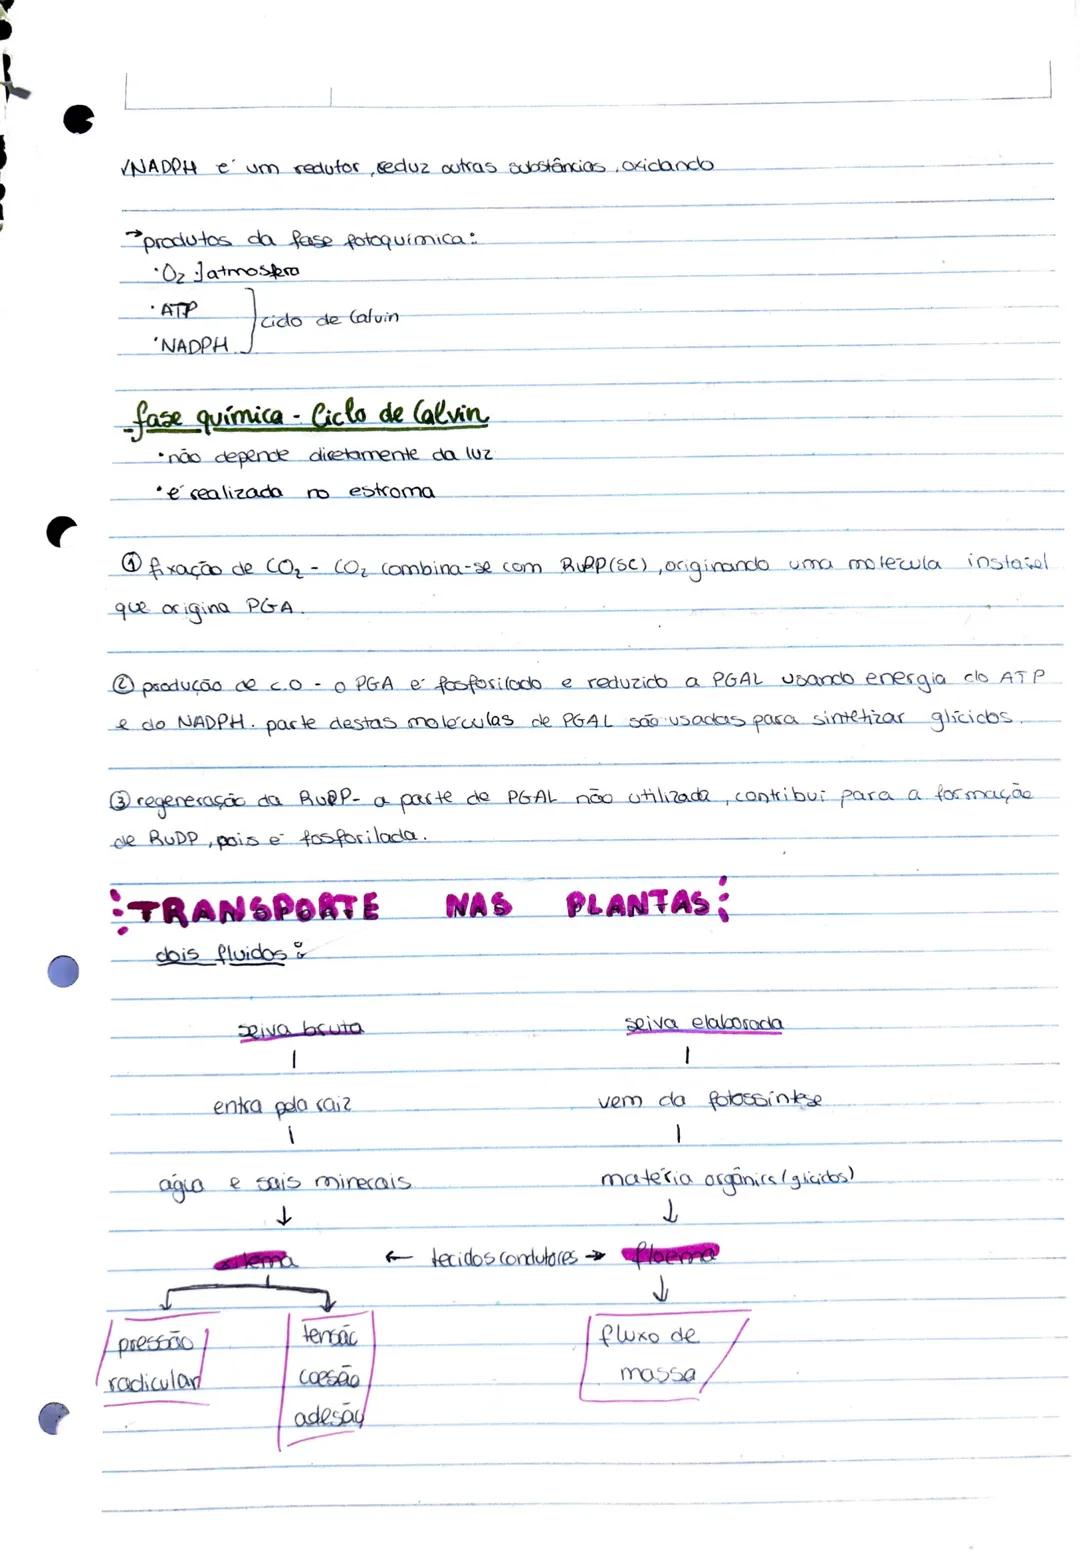 √NADPH é um redutor, reduz outras substâncias, oxidando
→produtos da fase fotoquímica:
·O₂ ] atmosfera
·ATP
] ciclo de Calvin
·NADPH
-fase química - Ciclo de Calvin
·não depende diretamente da luz
·é realizada no estroma
① fixação de CO₂ - CO₂ combina-se com RuBP(5C), originando uma molécula instável
que origina PGA.
② produção de c.o - o PGA é fosforilado e reduzido a PGAL usando energia do ATP
e do NADPH. parte destas moléculas de PGAL são usadas para sintetizar glícidos.
③ regeneração da RuDP- a parte de PGAL não utilizada, contribui para a formação
de RuDP, pois é fosforilada.
:TRANSPORTE NAS PLANTAS:
dois fluidos:
seiva bruta seiva elaborada
entra pela raiz vem da fotossíntese
água e sais minerais matéria orgânica (glícidos)
xilema ← tecidos condutores → floema
pressão tensão fluxo de
radicular coesão massa
adesão